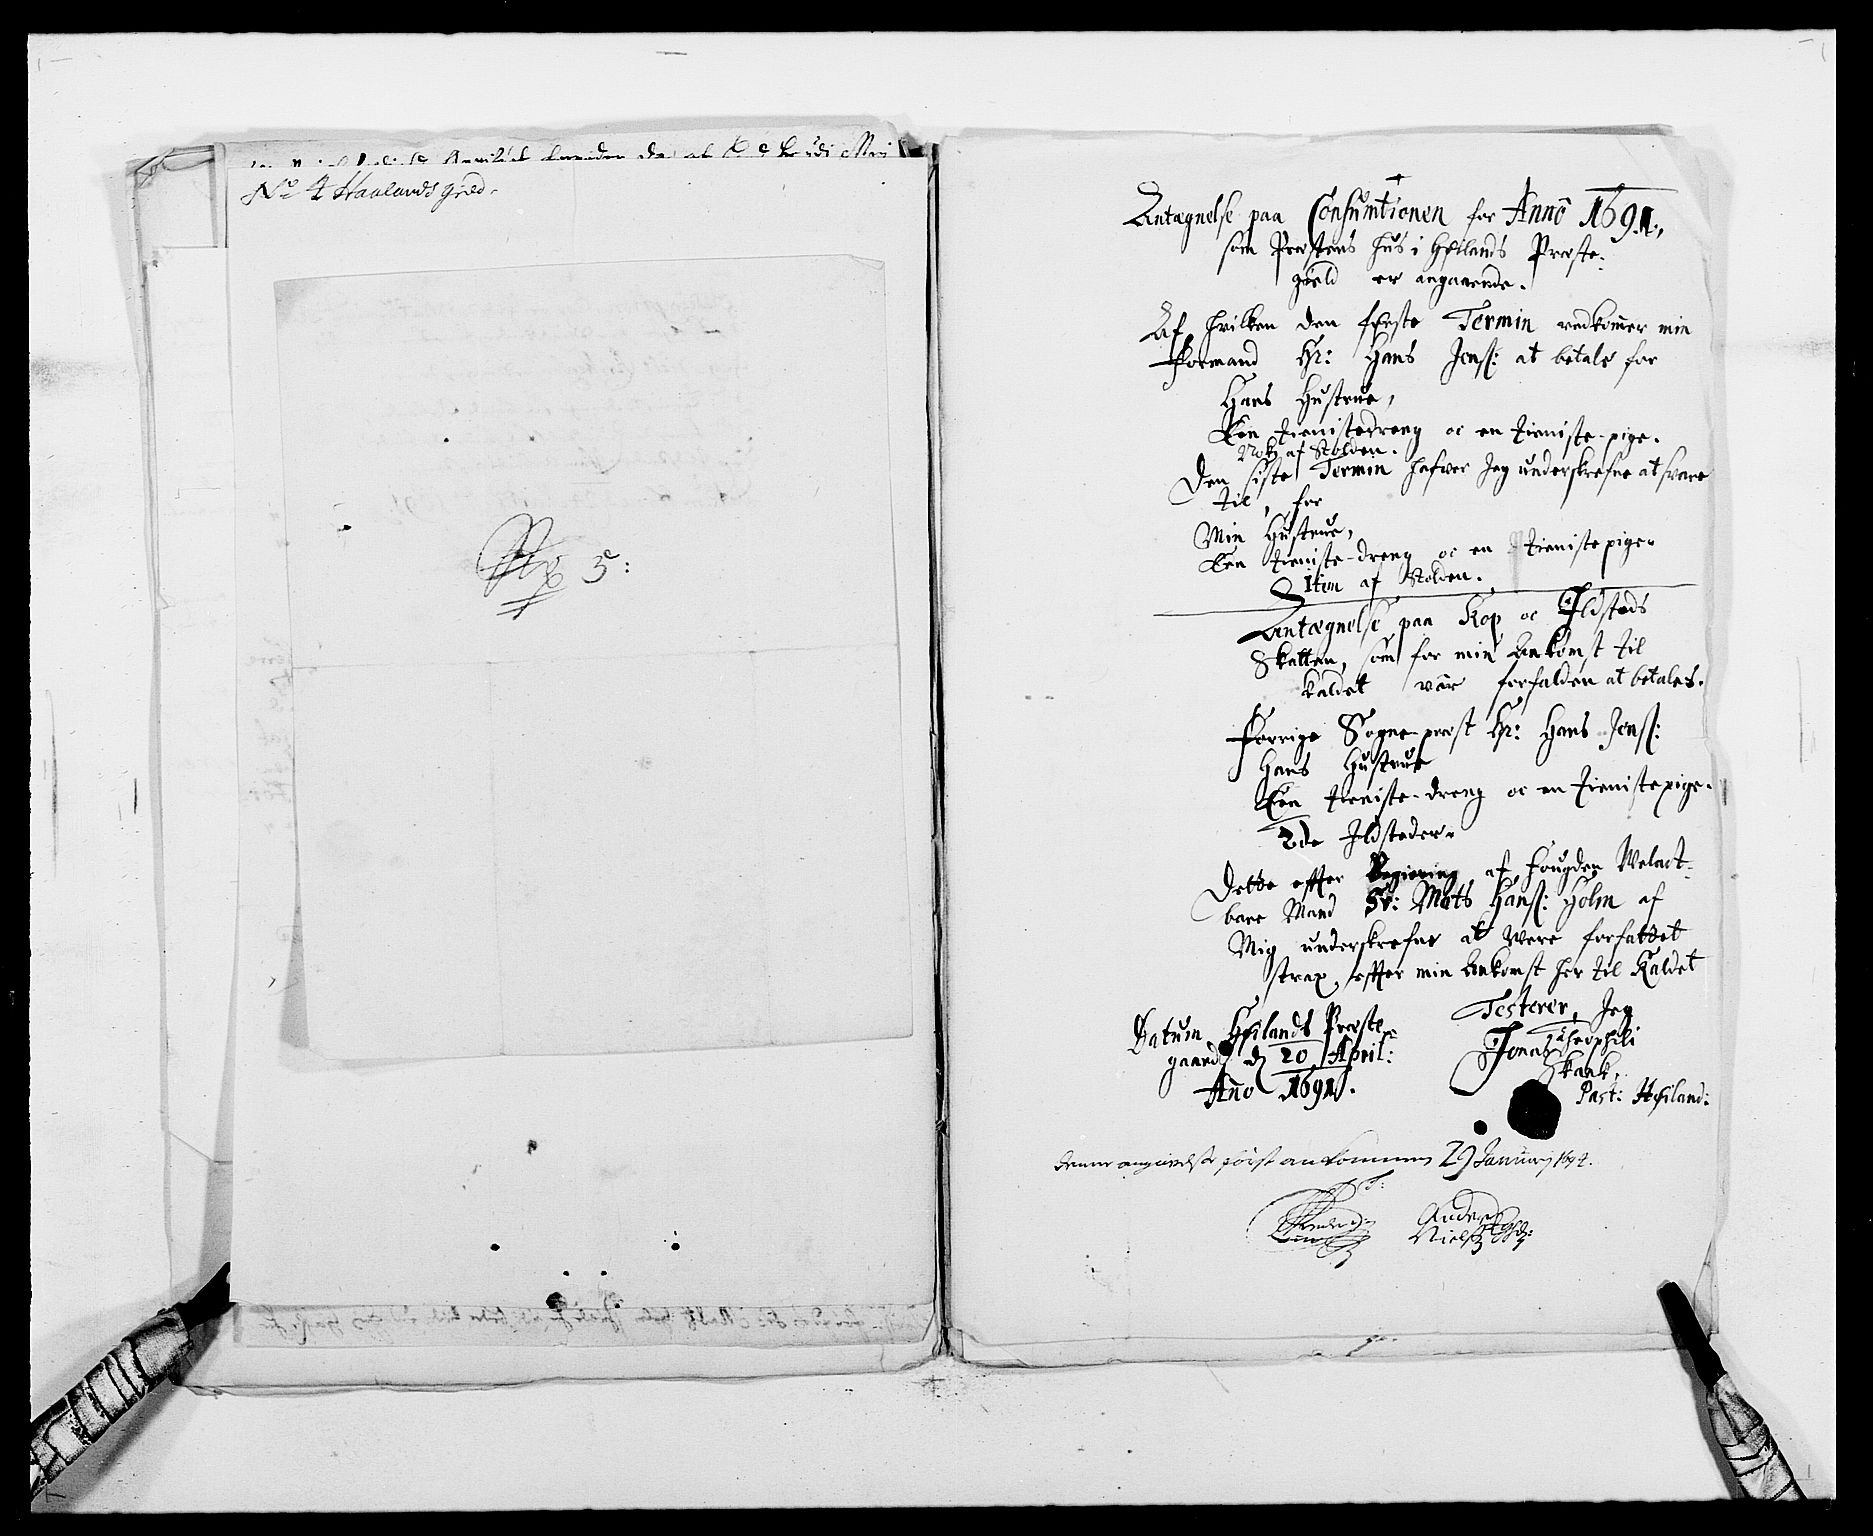 No 4 Haalands gield.
No 5:
Antægnelse paa Consumtionen for Anno 1691,
som Præstens hus i Høilands Præste-
gield er angaaende.
Af hvilken den første Termin vedkommer min
Formand Hr: Hans Jenss: at betale for
Hans Hustrue,
Een tienistedreng oc en tieniste-pige.
Nok af Stolden.
Den siste Termin hafver Jeg underskrefne at svare
til, for
Min Hustrue,
Een tieniste-dreng oc en tienistepige.
Item af Stolden.
Antægnelse paa Kop oc Ildsteds
Skatten, som for min Ankomst til
kaldet vår forfalden at betales.
Forrige Sogne-præst Hr: Hans Jenss:
Hans Hustrue
Een tieniste-dreng oc en tienistepige.
2de Ildsteder.
Dette effter af Fougden Welact-
bare Mand Sr: Mats Hanss: Holm af
Mig underskrefne at være forfattet
strax effter min Ankomst her til Kaldet
Testerer, Jeg
Datum Høilands Præste-
gaard d 20 April:
Anno 1691.
Jonas Theophili
Skank.
Past: Høiland:
Denne angivelse først ankommen 29 Januarij 1692.
Anders
Niels